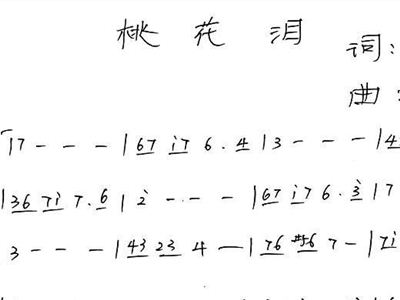 桃花泪
词:
曲:
17 - - - | 67 i7 6. 4 | 3 - - - | 4
| 36 7i 7. 6 | 2 - - - | 67 i7 6. 3 | 17
3 - - - | 43 23 4 — | 76 #56 7 - | 7i